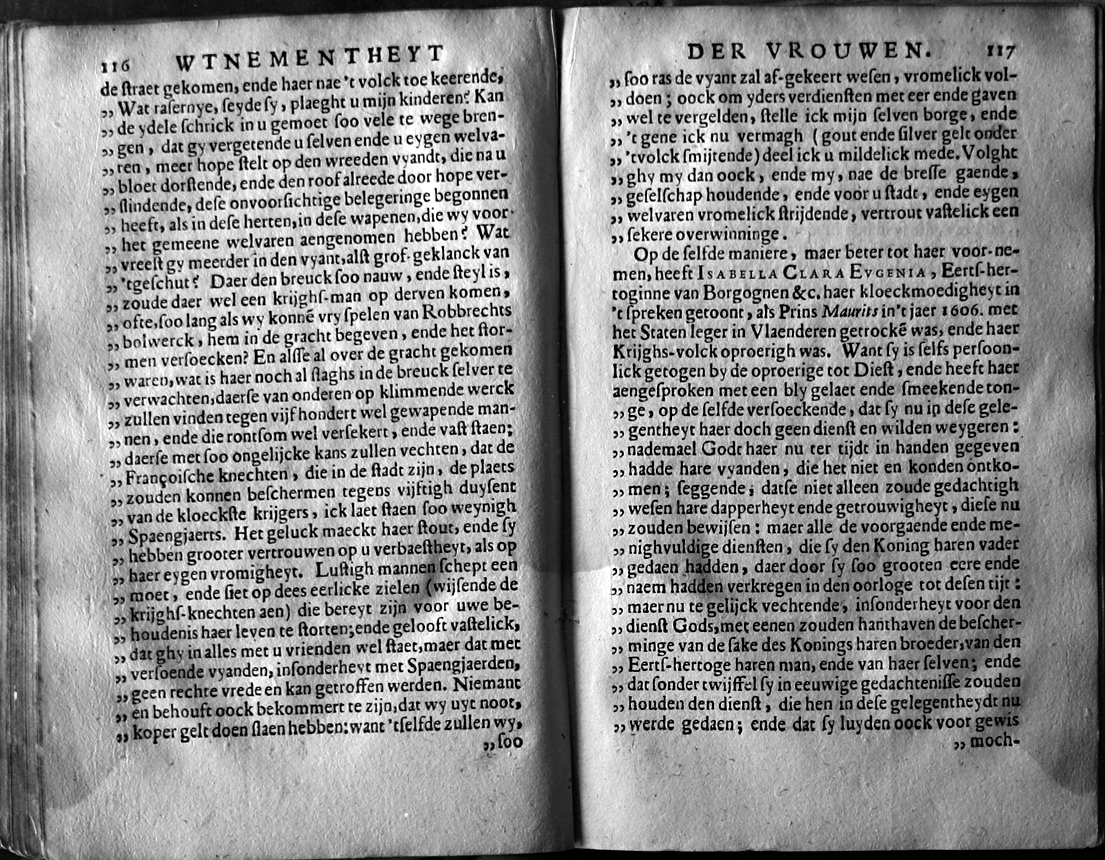 116 WTNEMENTHEYT
de ſtraet gekomen, ende haer nae 't volck toe keerende,
„ Wat raſernye, ſeyde ſy, plaeght u mijn kinderen? Kan
„ de ydele ſchrick in u gemoet ſoo vele te wege bren-
„ gen, dat gy vergetende u ſelven ende u eygen welva-
„ ren, meer hope ſtelt op den wreeden vyandt, die na u
„ bloet dorſtende, ende den roof alreede door hope ver-
„ ſlindende, deſe onvoorſichtige belegeringe begonnen
„ heeft, als in deſe herten, in deſe wapenen, die wy voor
„ het gemeene welvaren aengenomen hebben? Wat
„ vreeſt gy meerder in den vyant, alſt grof-geklanck van
„ 'tgeſchut? Daer den breuck ſoo nauw, ende ſteyl is,
„ zoude daer wel een krijghſ-man op derven komen,
„ ofte, ſoo lang als wy konnē vry ſpelen van Robbrechts
„ bolwerck, hem in de gracht begeven, ende het ſtor-
„ men verſoecken? En alſſe al over de gracht gekomen
„ waren, wat is haer noch al ſlaghs in de breuck ſelver te
„ verwachten, daerſe van onderen op klimmende werck
„ zullen vinden tegen vijf hondert wel gewapende man-
„ nen, ende die rontſom wel verſekert, ende vaſt ſtaen;
„ daerſe met ſoo ongelijcke kans zullen vechten, dat de
„ Françoiſche knechten, die in de ſtadt zijn, de plaets
„ zouden konnen beſchermen tegens vijftigh duyſent
„ van de kloeckſte krijgers, ick laet ſtaen ſoo weynigh
„ Spaengjaerts. Het geluck maeckt haer ſtout, ende ſy
„ hebben grooter vertrouwen op u verbaeſtheyt, als op
„ haer eygen vromigheyt. Luſtigh mannen ſchept een
„ moet, ende ſiet op dees eerlicke zielen (wijſende de
„ krijghſ-knechten aen) die bereyt zijn voor uwe be-
„ houdenis haer leven te ſtorten; ende gelooft vaſtelick,
„ dat ghy in alles met u vrienden wel ſtaet, maer dat met
„ verſoende vyanden, inſonderheyt met Spaengjaerden,
„ geen rechte vrede en kan getroffen werden. Niemant
„ en behouft oock bekommert te zijn, dat wy uyt noot,
„ koper gelt doen ſlaen hebben: want 'tſelfde zullen wy,
„ ſoo
DER VROUWEN. 117
„ ſoo ras de vyant zal af-gekeert weſen, vromelick vol-
„ doen; oock om yders verdienſten met eer ende gaven
„ wel te vergelden, ſtelle ick mijn ſelven borge, ende
„ 't gene ick nu vermagh (gout ende ſilver gelt onder
„ 'tvolck ſmijtende) deel ick u mildelick mede. Volght
„ ghy my dan oock, ende my, nae de breſſe gaende,
„ geſelſchap houdende, ende voor u ſtadt, ende eygen
„ welvaren vromelick ſtrijdende, vertrout vaſtelick een
„ ſekere overwinninge.
Op de ſelfde maniere, maer beter tot haer voor-ne-
men, heeft ISABELLA CLARA EVGENIA, Eertſ-her-
toginne van Borgognen &c. haer kloeckmoedigheyt in
't ſpreken getoont, als Prins Maurits in't jaer 1606. met
het Staten leger in Vlaenderen getrockē was, ende haer
Krijghs-volck oproerigh was. Want ſy is ſelfs perſoon-
lick getogen by de oproerige tot Dieſt, ende heeft haer
aengeſproken met een bly gelaet ende ſmeekende ton-
„ ge, op de ſelfde verſoeckende, dat ſy nu in deſe gele-
„ gentheyt haer doch geen dienſt en wilden weygeren:
„ nademael Godt haer nu ter tijdt in handen gegeven
„ hadde hare vyanden, die het niet en konden ontko-
„ men; ſeggende, datſe niet alleen zoude gedachtigh
„ weſen hare dapperheyt ende getrouwigheyt, dieſe nu
„ zouden bewijſen: maer alle de voorgaende ende me-
„ nighvuldige dienſten, die ſy den Koning haren vader
„ gedaen hadden, daer door ſy ſoo grooten eere ende
„ naem hadden verkregen in den oorloge tot deſen tijt:
„ maer nu te gelijck vechtende, inſonderheyt voor den
„ dienſt Gods, met eenen zouden hanthaven de beſcher-
„ minge van de ſake des Konings haren broeder, van den
„ Eertſ-hertoge haren man, ende van haer ſelven; ende
„ dat ſonder twijffel ſy in eeuwige gedachteniſſe zouden
„ houden den dienſt, die hen in deſe gelegentheydt nu
„ werde gedaen; ende dat ſy luyden oock voor gewis
„ moch-